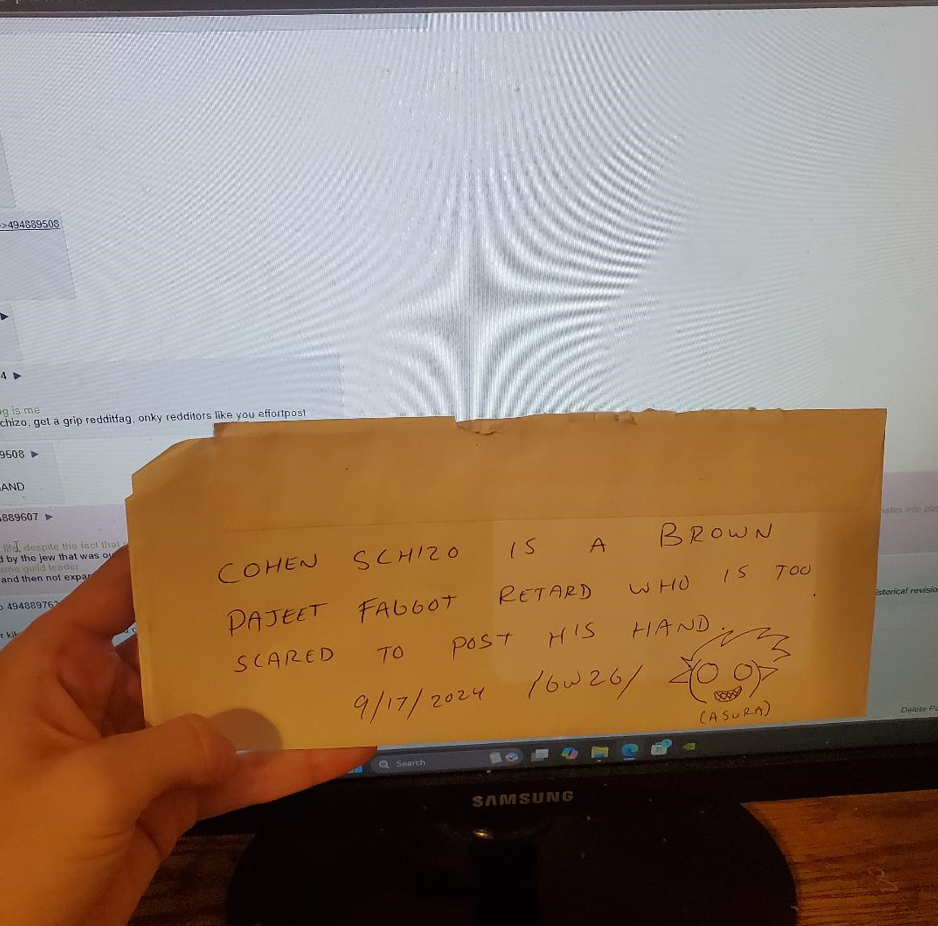 >>494889508
4
g is me
chizo, get a grip redditfag, onky redditors like you effortpost
9508
AND
889607
life, despite the fact that
d by the jew that was ou
ame guild leader
and then not expa
494889762
COHEN SCHIZO IS A BROWN
PAJEET FAGGOT RETARD WHO IS TOO
SCARED TO POST HIS HAND.
9/17/2024 /GW2G/
(ASURA)
istorical revisio
Delete Po
Search
SAMSUNG